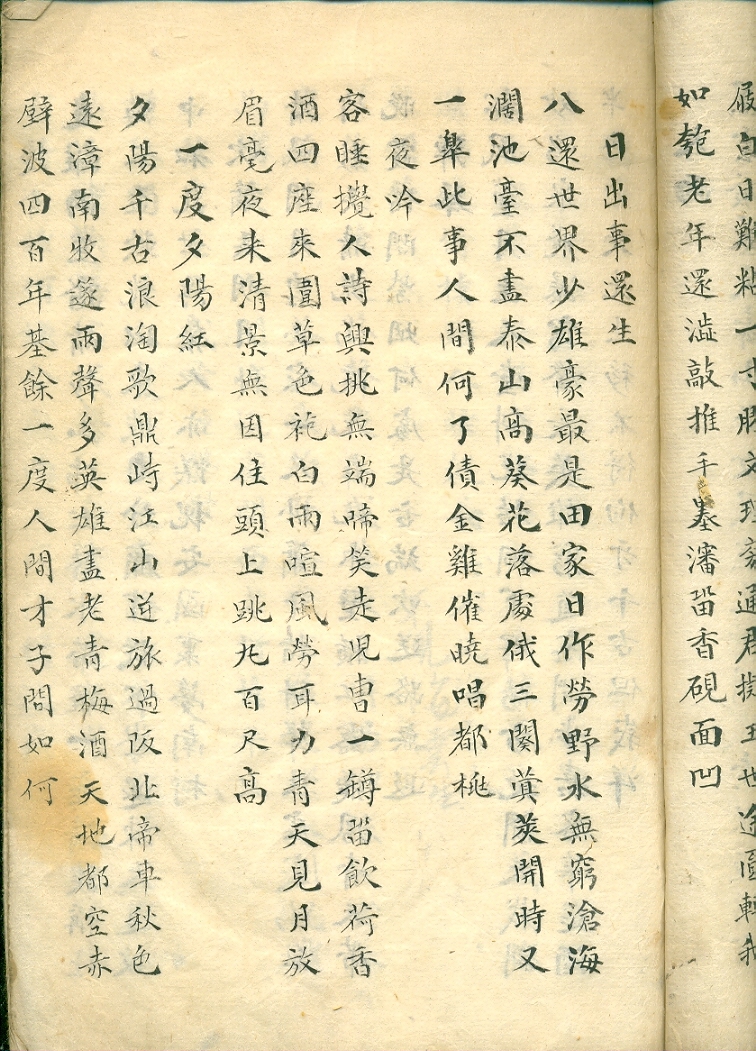 屐白日難粘一寸膠文理
如匏老年還澁敲推手墨瀋留香硯面凹
日出事還生
八還世界少雄豪最是田家日作勞野水無窮滄海
濶池臺不盡泰山高葵花落處俄三閱蓂莢開時又
一舉此事人間何了債金雞催曉唱都桃
夜吟
客睡攪人詩興挑無端啼笑走児曹一鐏留飲荷香
酒四座來圍草色袍白雨喧風勞耳力青天見月放
眉毫夜来清景無因住頭上跳丸百尺高
一度夕陽紅
夕陽千古浪淘歌鼎峙江山逆旅過阪北帝車秋色
遠漳南牧篴雨聲多英雄盡老青梅酒天地都空赤
壁波四百年基餘一度人間才子問如何